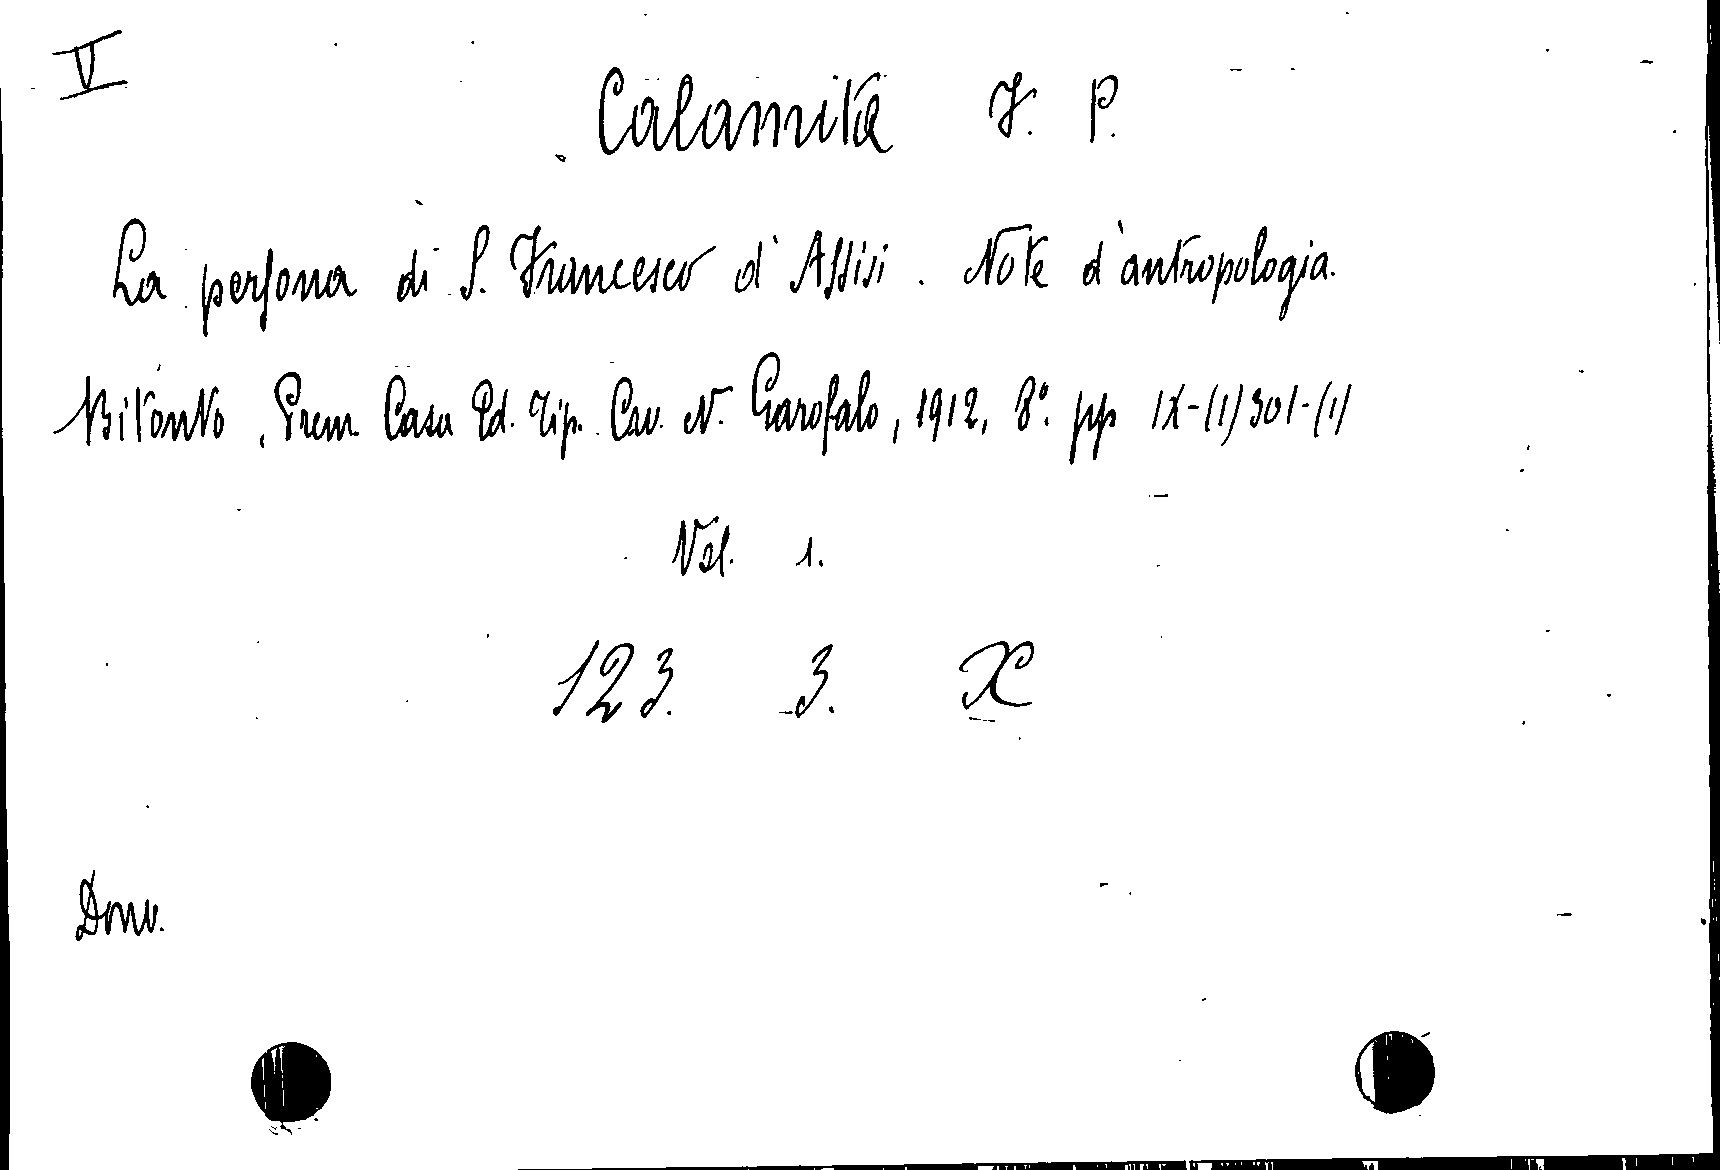 V
Calamita F. P.
La persona di S. Francesco d'Assisi. Note d'antropologia.
Bitonto, Prem. Casa Ed. Tip. Cav. N. Garofalo, 1912, 8° pp IX-(1)301-(1)
Vol. 1.
123. 3. X
Dono.